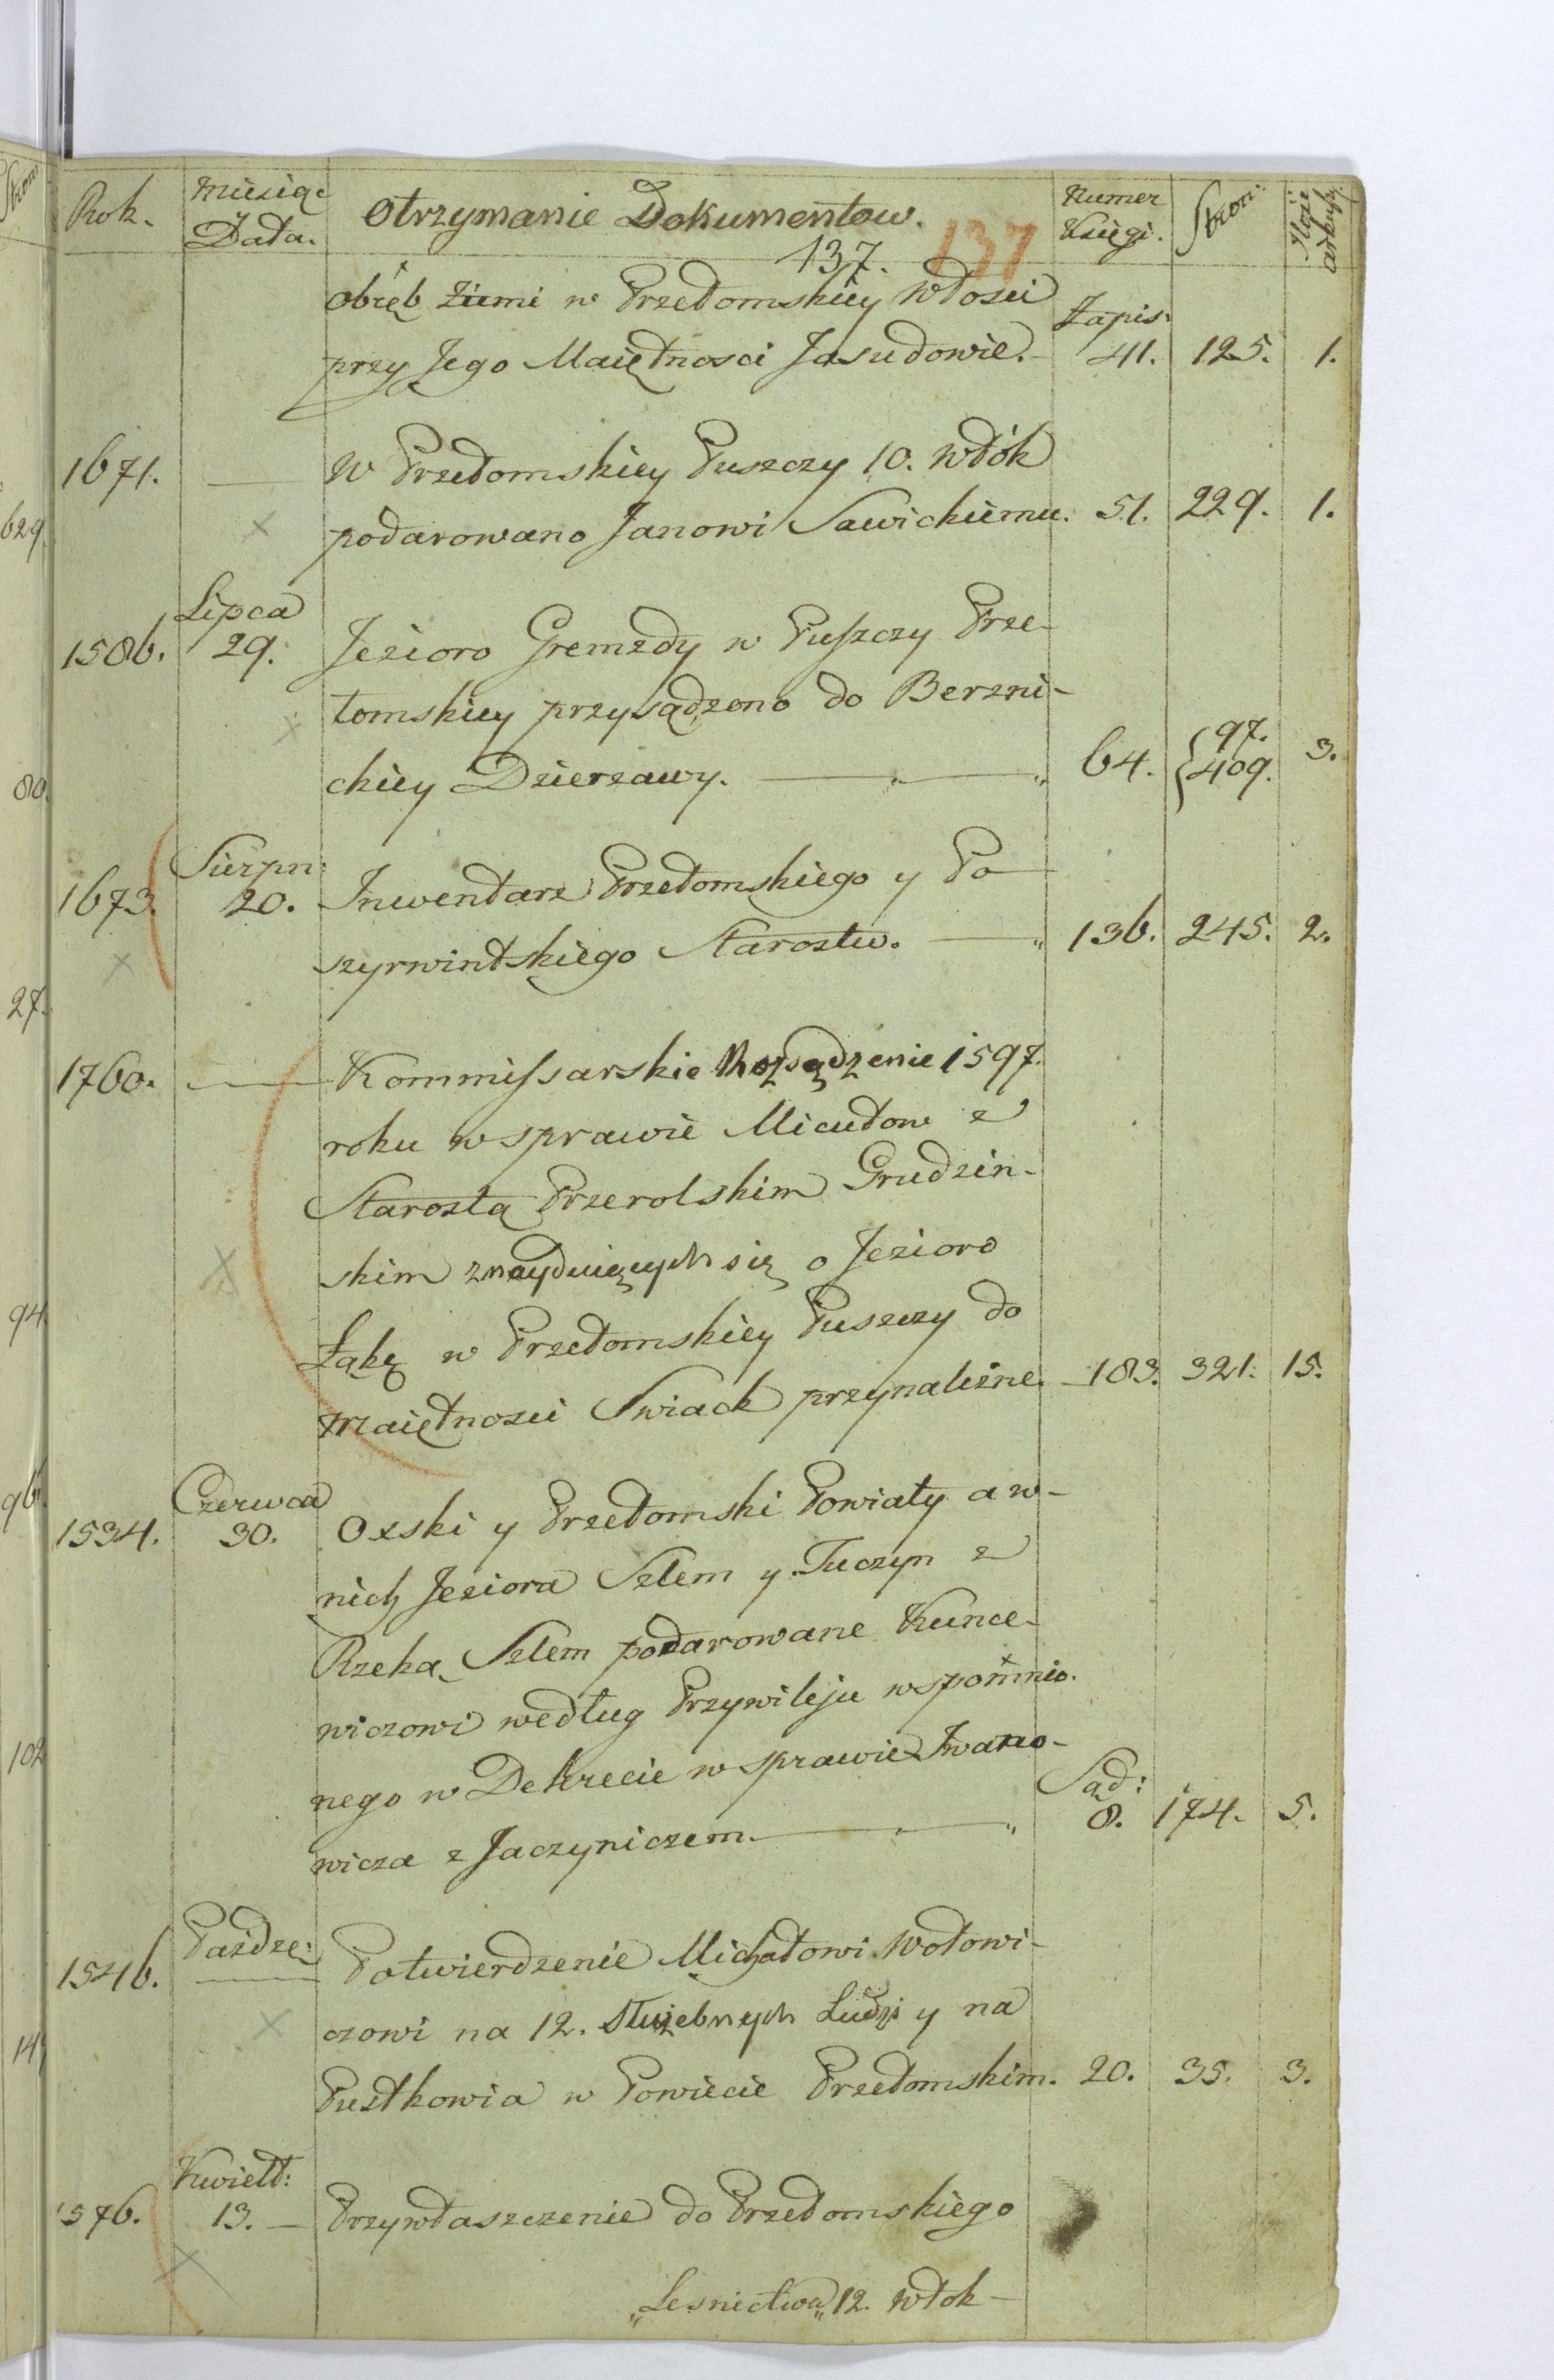 Rok. Miesiąc Data. Otrzymanie Dokumentow. Numer Księgi. Stron Ilość arkuszy
137. 137
obręb Ziemi w Przełomskiey Włosci Zapis:
przy Jego Maiętnosci Jasudowie. 41. 125. 1.
1671. — W Przełomskiey Puszczy 10. Włók
podarowano Janowi Sawickiemu. 51. 229. 1.
Lipca
1586. 29. Jezioro Gremzdy w Puszczy Prze-
łomskiey przysądzono do Berzni-
ckiey Dzierzawy. — 64. {97. 409. 3.
Sierpn:
1673. 20. Inwentarz Przełomskiego y Po-
szyrwintskiego Starostw. — 136. 245. 2.
1760. — Kommissarskie Rozsądzenie 1597.
roku w sprawie Micutow z
Starostą Przerolskim Grudzin-
skim znayduiących się o Jezioro
Łąkę w Przełomskiey Puszczy do
maiętnosci Swiack przynależne. 183. 321. 15.
Czerwca
1534. 30. Ozski y Przełomski Powiaty a w-
nich Jeziora Szlem y Tuczyn z
Rzeką Szlem podarowane Kunce-
wiczowi według Przywileju wspomnio-
nego w Dekrecie w sprawie Iwano-
wicza z Jaczyniczem. — Sąd: 8. 174. 5.
Paźdze:
1546. — Potwierdzenie Michałowi Wołowi-
czowi na 12. Służebnych Ludzi y na
Pustkowia w Powiecie Przełomskim. 20. 35. 3.
Kwiett:
1576. 13. — Przywłaszczenie do Przełomskiego
„Lesnictwa„ 12. Włok —
629.
80.
27.
94
96.
102
14